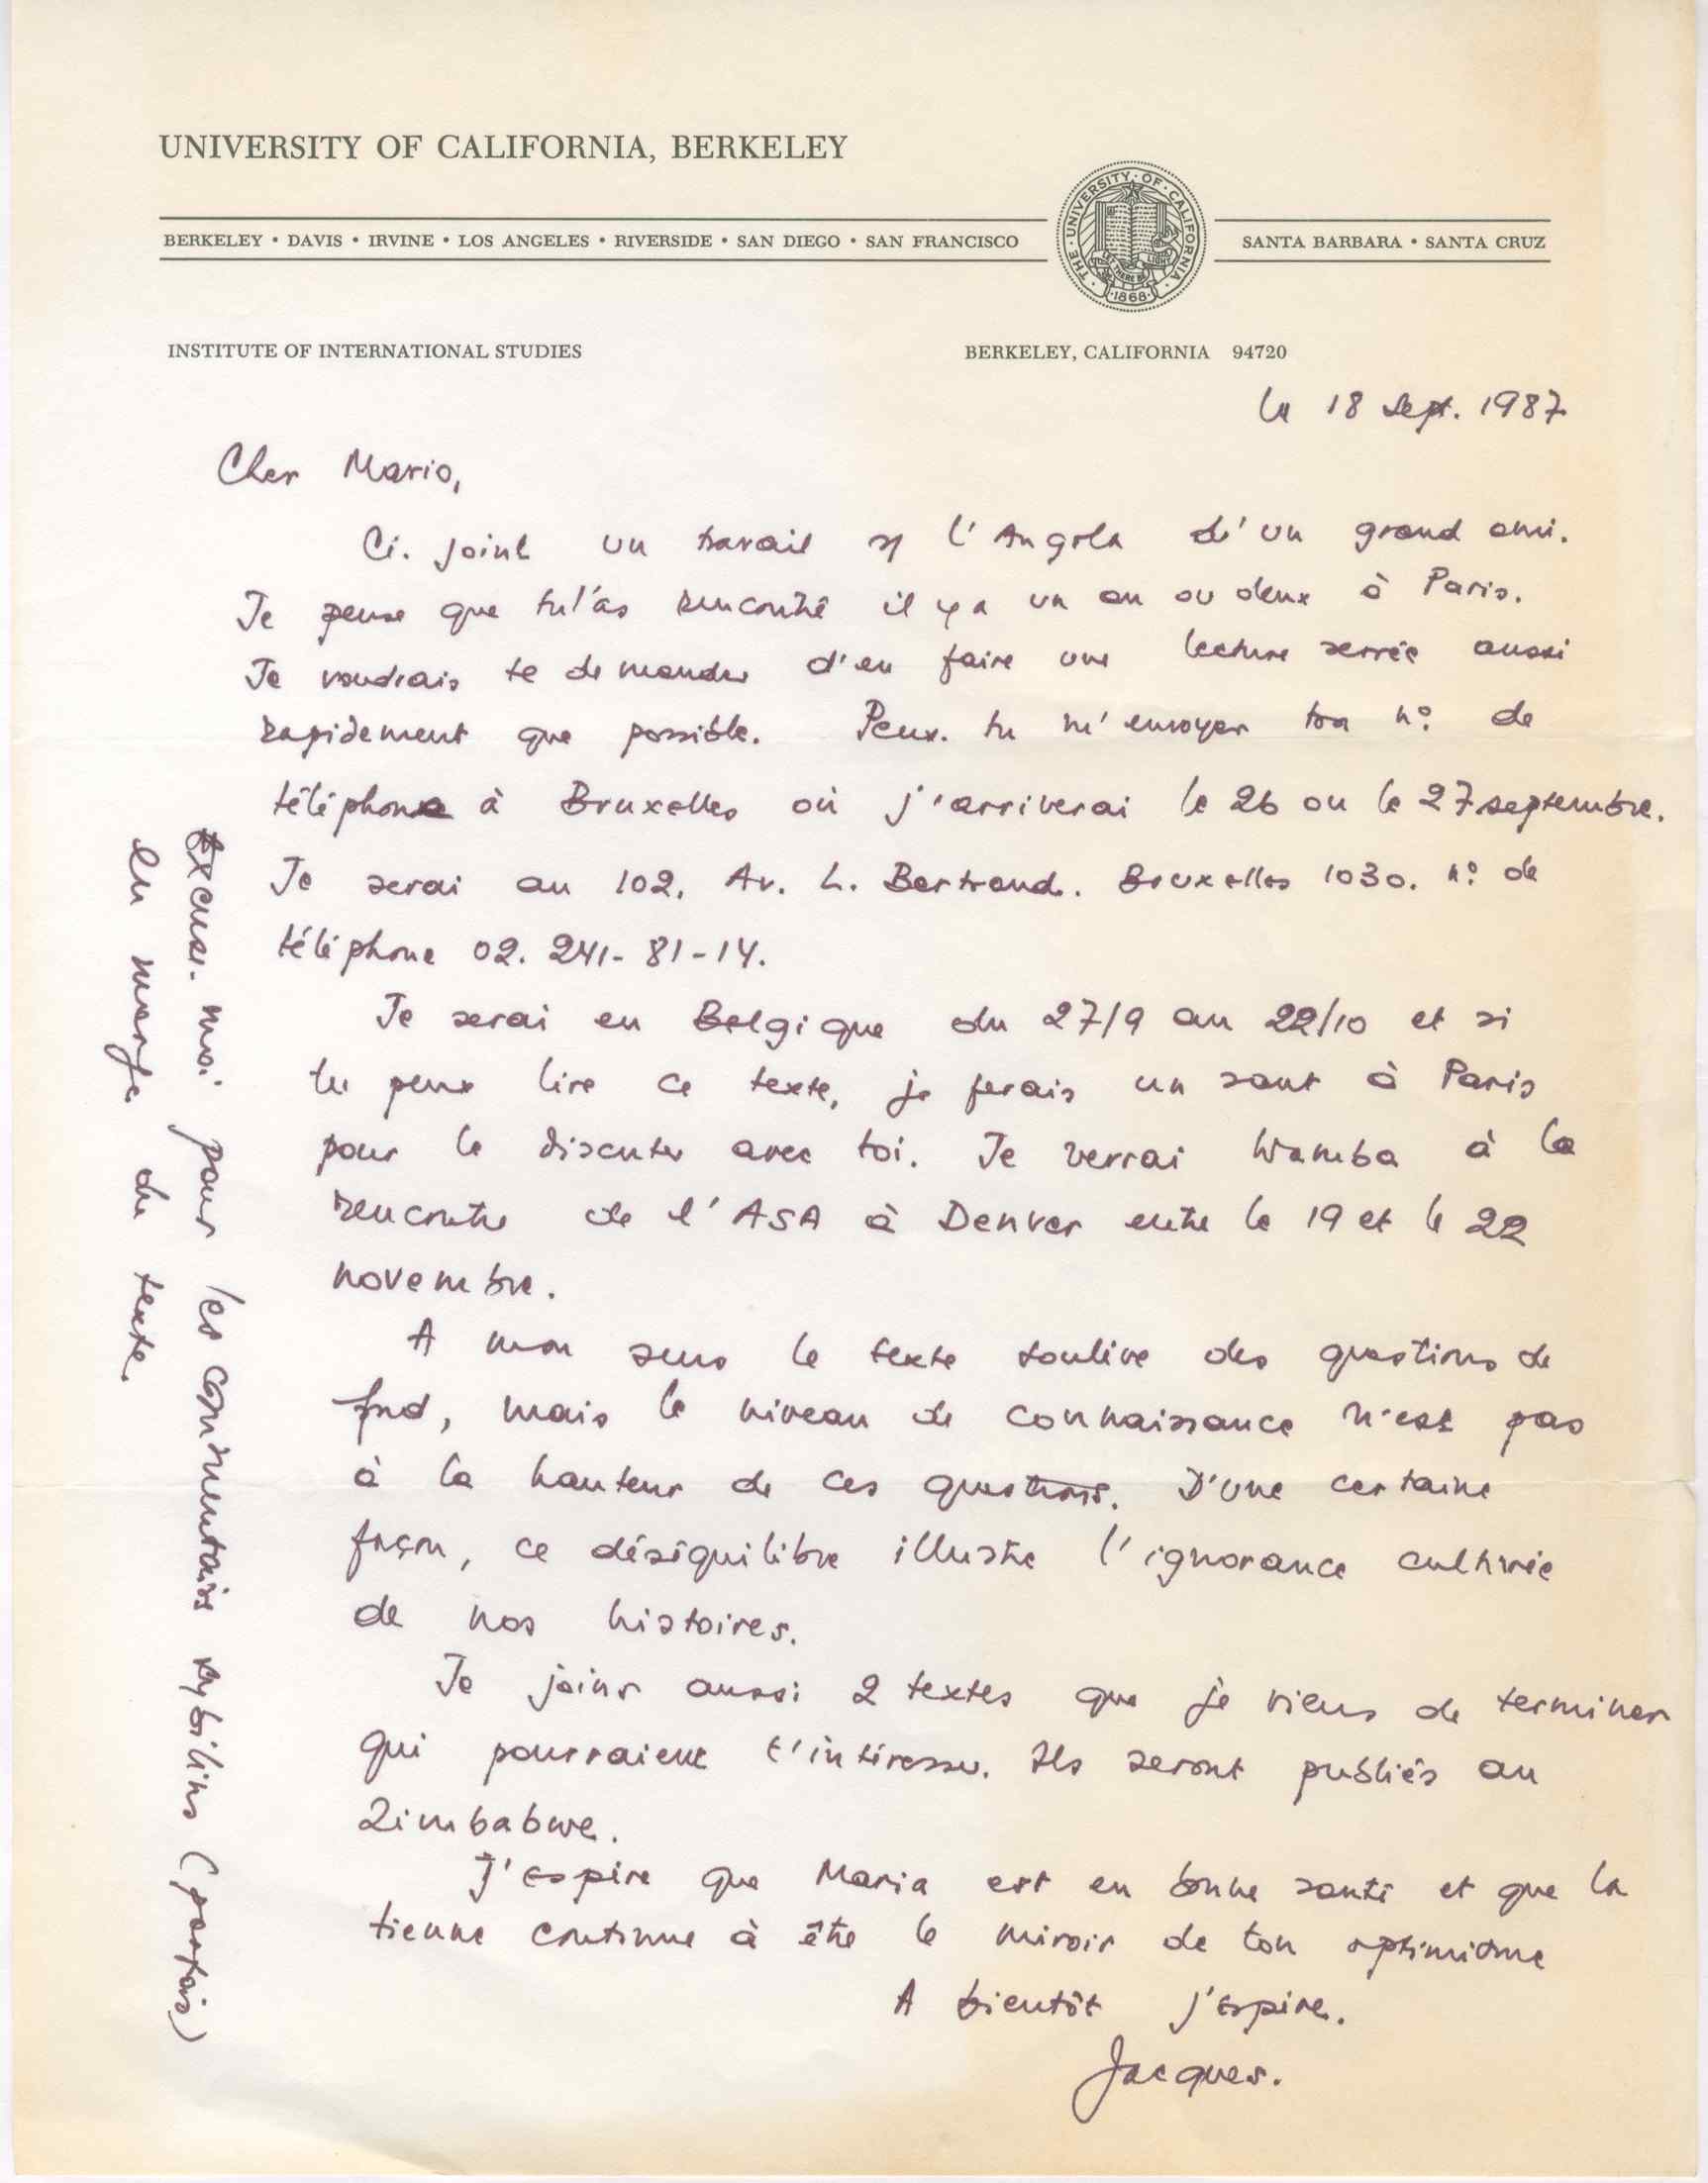 UNIVERSITY OF CALIFORNIA, BERKELEY
BERKELEY • DAVIS • IRVINE • LOS ANGELES • RIVERSIDE • SAN DIEGO • SAN FRANCISCO
SANTA BARBARA • SANTA CRUZ
THE · UNIVERSITY · OF · CALIFORNIA
LET THERE BE LIGHT
· 1868 ·
INSTITUTE OF INTERNATIONAL STUDIES
BERKELEY, CALIFORNIA 94720
le 18 Sept. 1987
Cher Mario,
Ci. joint un travail l'Angola d'un grand ami.
Je pense que tu l'as rencontré il y a un an ou deux à Paris.
Je voudrais te demander d'en faire une lecture serrée aussi
rapidement que possible. Peux. tu m'envoyer ton nº de
téléphone à Bruxelles où j'arriverai le 26 ou le 27 septembre.
Je serai au 102, Av. L. Bertrand. Bruxelles 1030. nº de
téléphone 02. 241-81-14.
Je serai en Belgique du 27/9 au 22/10 et si
tu peux lire ce texte, je ferais un saut à Paris
pour le discuter avec toi. Je verrai Wamba à la
rencontre de l'ASA à Denver entre le 19 et le 22
novembre.
A mon sens le texte soulève des questions de
fond, mais le niveau de connaissance n'est pas
à la hauteur de ces questions. D'une certaine
façon, ce déséquilibre illustre l'ignorance cultivée
de nos histoires.
Je joins aussi 2 textes que je viens de terminer
qui pourraient t'intéresser. Ils seront publiés au
Zimbabwe.
J'espère que Maria est en bonne santé et que la
tienne continue à être le miroir de ton optimisme
A bientôt j'espère.
Jacques.
Excuses-moi pour les commentaires sybilins (parfois)
en marge du texte.